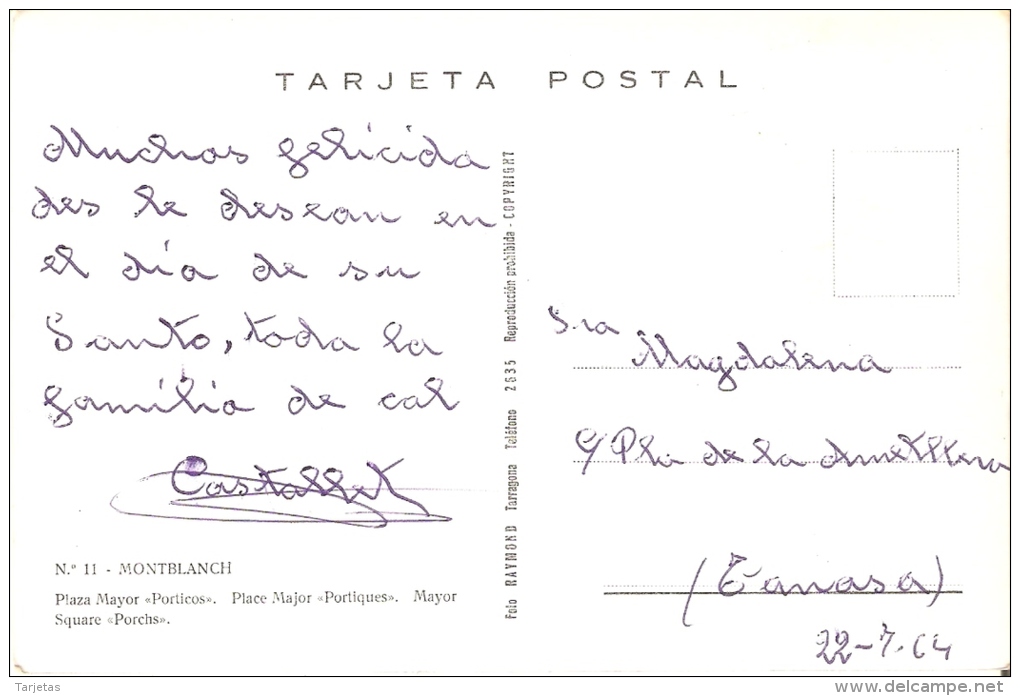 TARJETA POSTAL
Muchas felicida
des le desean en
el día de su
Santo, toda la
familia de cal
Castallet
N.º 11 - MONTBLANCH
Plaza Mayor «Porticos». Place Major «Portiques». Mayor
Square «Porchs».
Foto RAYMOND Tarragona Teléfono 2835 Reproducción prohibida - COPYRIGHT
Sra
Magdalena
C/ Pla de la Ametllera
22-7-64
Tarjetas
www.delcampe.net